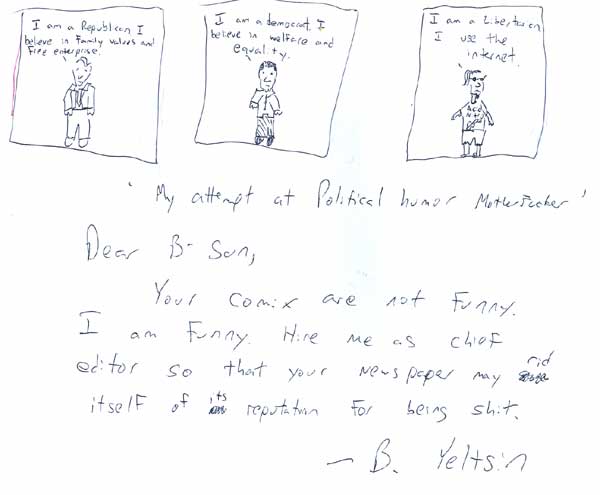 I am a Republican I
believe in Family values and
Free enterprise.
I am a democrat. I
believe in welfare and
equality.
I am a Libertarian
I use the
internet.
'My attempt at Political humor MotherFucker'
Dear B-Sun,
Your comix are not Funny.
I am Funny. Hire me as chief
editor so that your newspaper may rid
itself of its reputation For being shit.
— B. Yeltsin